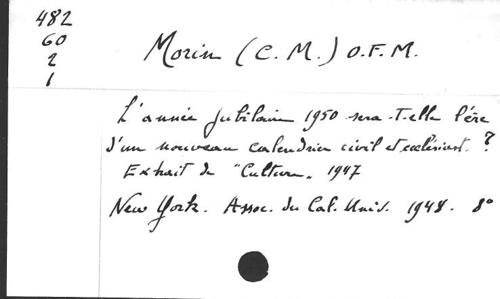 482
60
2
1
Morin (C. M.) O.F.M.
L'année jubilaire 1950 sera-t-elle l'ère
d'un nouveau calendrier civil et ecclésiast. ?
Extrait de "Culture" 1947
New York. Assoc. du Cal. Univ. 1948. 8°